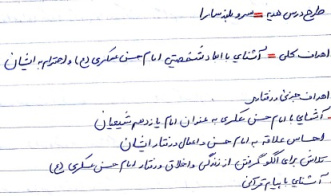 طرح درس هدیه = سرو بلند سامرا
اهداف کلی = آشنایی با ابعاد شخصیتی امام حسن عسکری (ع) و احترام به ایشان
اهداف جزئی و رفتاری
- آشنایی با امام حسن عسکری به عنوان امام یازدهم شیعیان
احساس علاقه به امام حسن و اعمال و رفتار ایشان
- تلاش برای الگو گرفتن از زندگی و اخلاق و رفتار امام حسن عسکری (ع)
آشنایی با پیام قرآنی